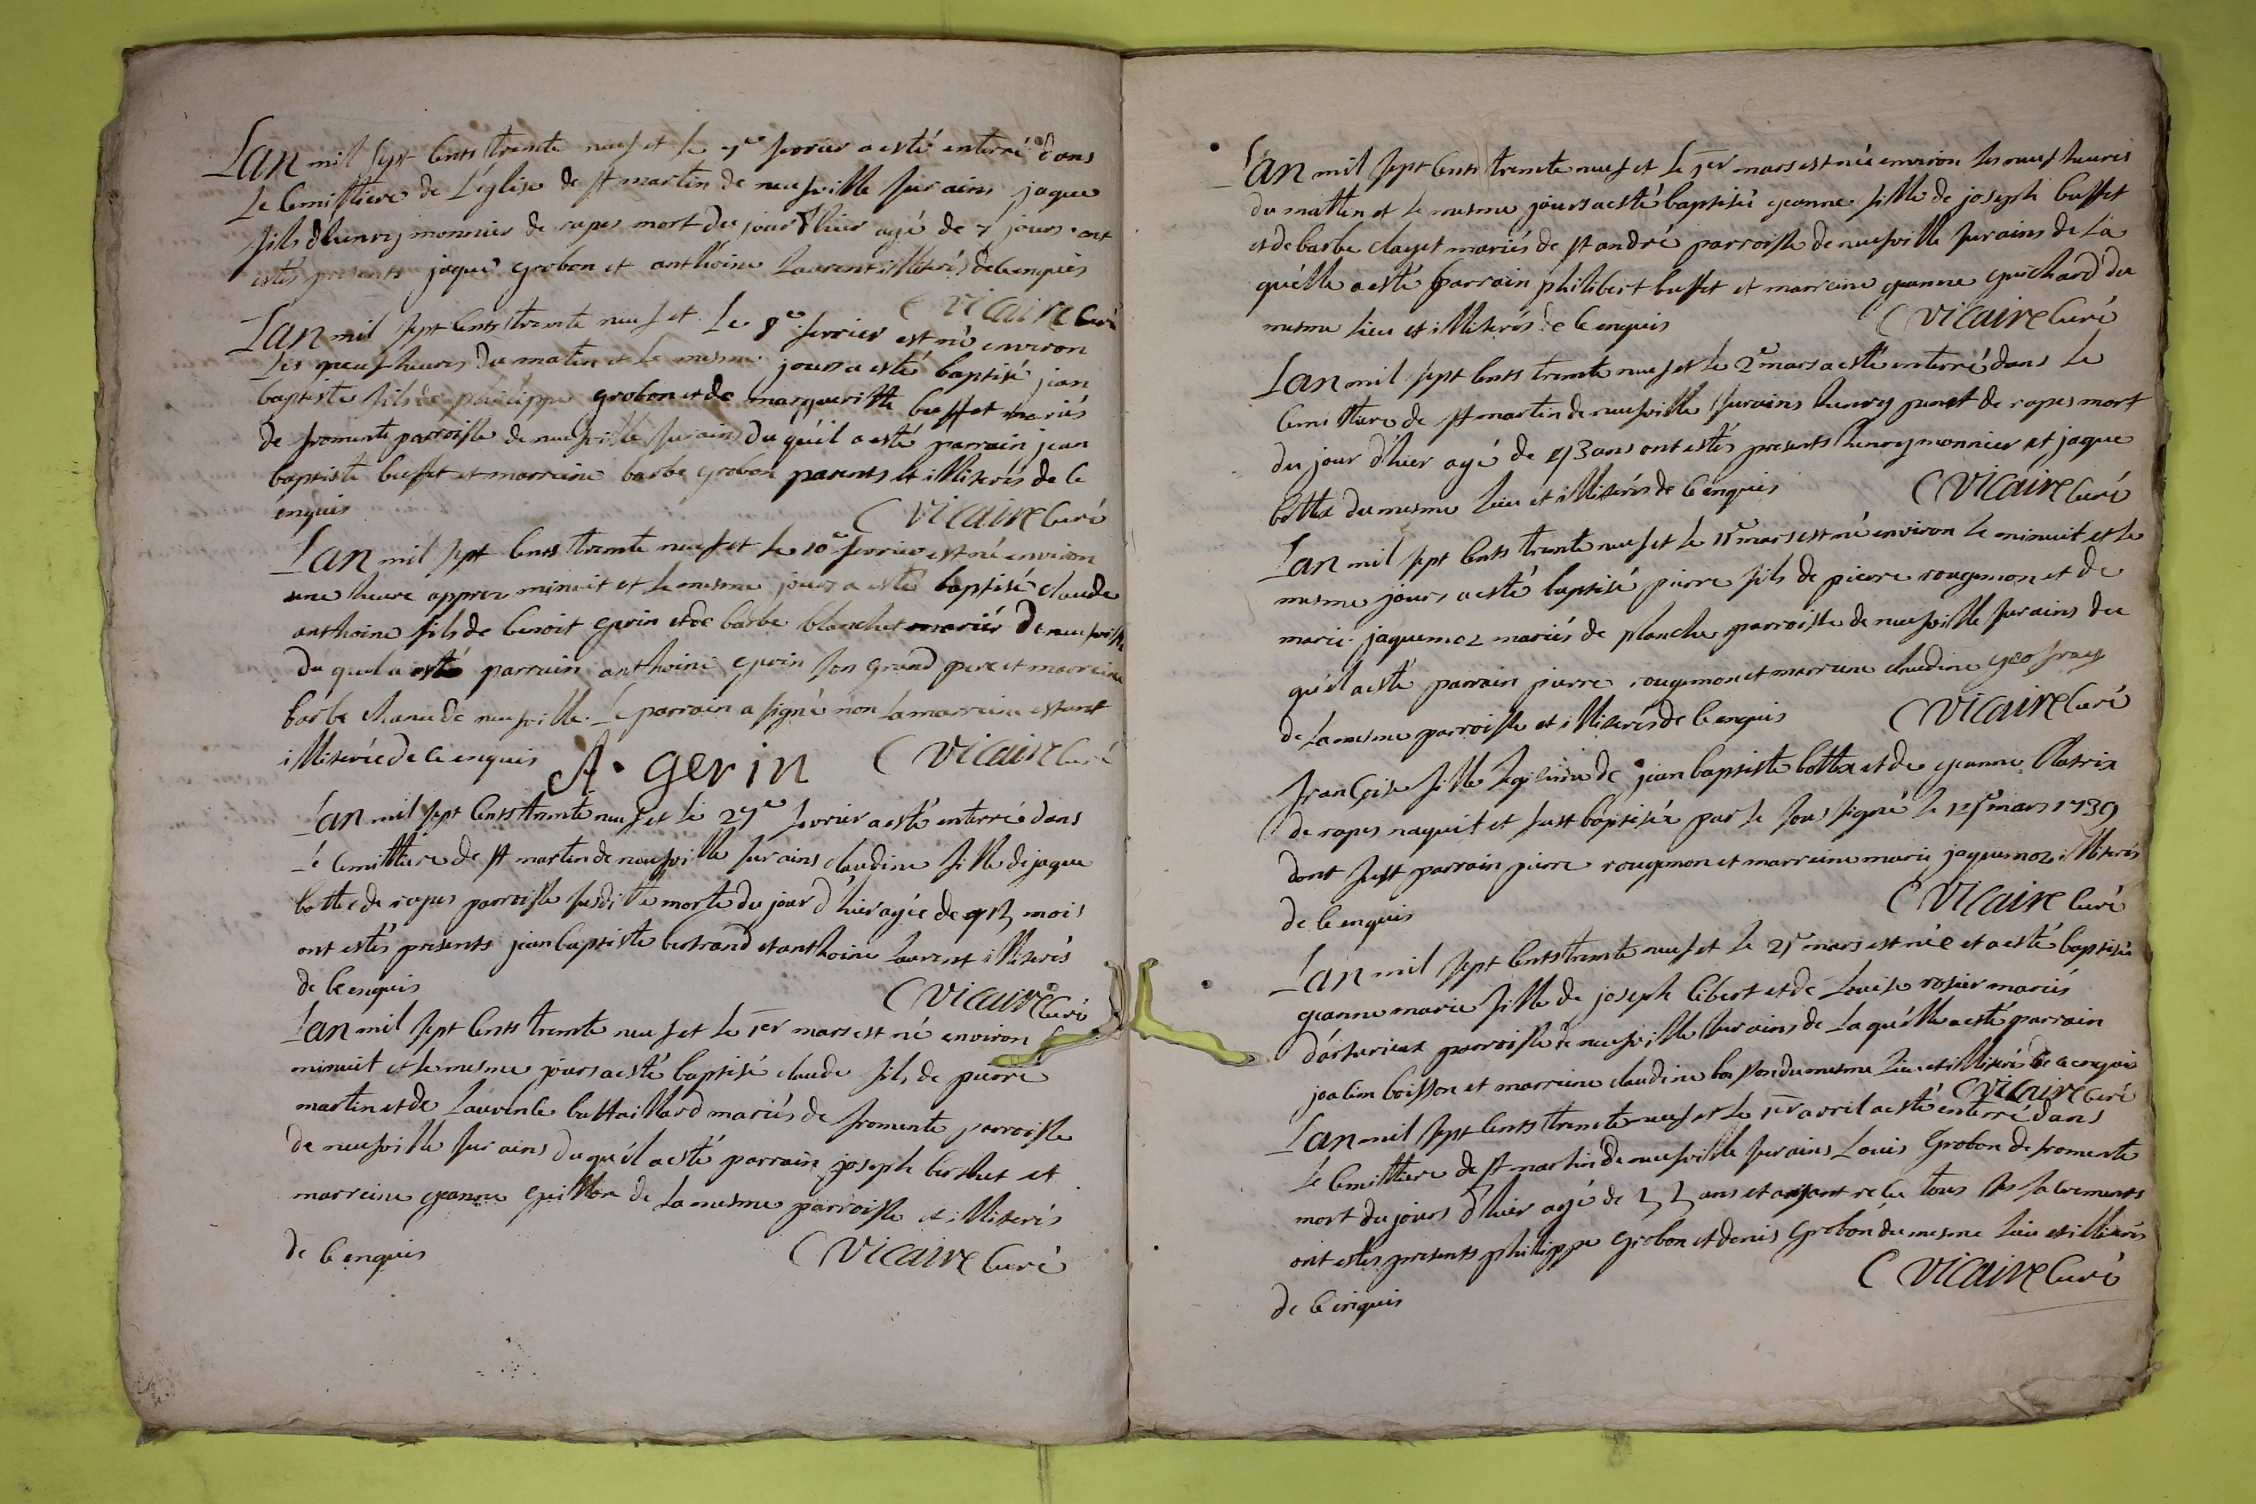 Lan mil sept cents trente neuf et le 7e fevrier a esté enterré dans
le cemittiere de l'église de st martin de neufville sur ains jaque
fils d'henry monnier de rapes mort du jour d'hier agé de 7 jours ont
estés presents jaque grobon et anthoine laurent illiterés de ce enquis
C Vicaire curé
Lan mil sept cents trente neuf et le 8e fevrier est né environ
les neuf heures du matin et le mesme jours a esté baptisé jean
baptiste fils de philippe grobon et de margueritte buffet mariés
de fromente parroisse de neufville sur ains du qu'il a esté parrain jean
baptiste buffet et marreine barbe grobon parents et illiterés de ce
enquis
C Vicaire curé
Lan mil sept cents trente neuf et le 10e fevrier est né environ
une heure apprez minuit et le mesme jours a esté baptisé claude
anthoine fils de benoit gerin et de barbe blanchet mariés de neufville
du quel a esté parrain anthoine gerin son grand pere et marreine
barbe chanu de neufville. le parrain a signé non la marreine estant
illiterée de ce enquis A. gerin C Vicaire curé
Lan mil sept cents trente neuf et le 27e fevrier a esté enterré dans
le cemittiere de st martin de neufville sur ains claudine fille de jaque
bottex de rapes parroisse susditte morte du jour d'hier agée de mois
ont estés presents jean baptiste bertrand et anthoine laurent illiterés
de ce enquis
C Vicaire curé
Lan mil sept cents trente neuf et le 1er mars est né environ
minuit et le mesme jours a esté baptisé claude fils de pierre
martin et de laurence buttaillard mariés de fromente parroisse
de neufville sur ains du qu'il a esté parrain joseph berthet et
marreine jeanne guillon de la mesme parroisse et illiterés
de ce enquis
C Vicaire curé
L'an mil sept cents trente neuf et le 1er mars est née environ les neuf heures
du mattin et le mesme jours a esté baptisée jeanne fille de joseph buffet
et de barbe clayet mariés de st andré parroisse de neufville sur ains de la
qu'elle a esté parrain philibert buffet et marreine jeanne guichard du
mesme lieu et illiterés de ce enquis
C Vicaire curé
Lan mil sept cents trente neuf et le 2e mars a esté enterré dans le
cemittiere de st martin de neufville sur ains henry punet de rapes mort
du jour d'hier agé de 73 ans ont estés presents henry monnier et jaque
bottex du mesme lieu et illiterés de ce enquis
C Vicaire curé
Lan mil sept cents trente neuf et le mars est né environ le minuit et le
mesme jours a esté baptisé pierre fils de pierre rougemon et de
marie jaquemoz mariés de planche parroisse de neufville sur ains du
qu'el a esté parrain pierre rougemon et marreine claudine geofray
de la mesme parroisse et illiterés de ce enquis
C Vicaire curé
françoise fille legitime de jean baptiste bottex et de jeanne blatrix
de rapes naquit et fust baptisée par le sous signé le mars 1739
dont fust parrain pierre rougemon et marreine marie jaquemoz illiterés
de ce enquis
C Vicaire curé
Lan mil sept cents trente neuf et le mars est née et a esté baptisée
jeanne marie fille de joseph libert et de louise rosier mariés
d'arturieux parroisse de neufville sur ains de la qu'elle a esté parrain
joachin boisson et marreine claudine boisson du mesme lieu et illiterés de ce enquis
C Vicaire curé
Lan mil sept cents trente neuf et le 1er avril a esté enterré dans
le cemittiere de st martin de neufville sur ains louis grobon de fromente
mort du jours d'hier agé de ans et aiyant rećeu tous ses sacrements
ont estés presents philippe grobon et denis grobon du mesme lieu et illiterés
de ce enquis
C Vicaire curé